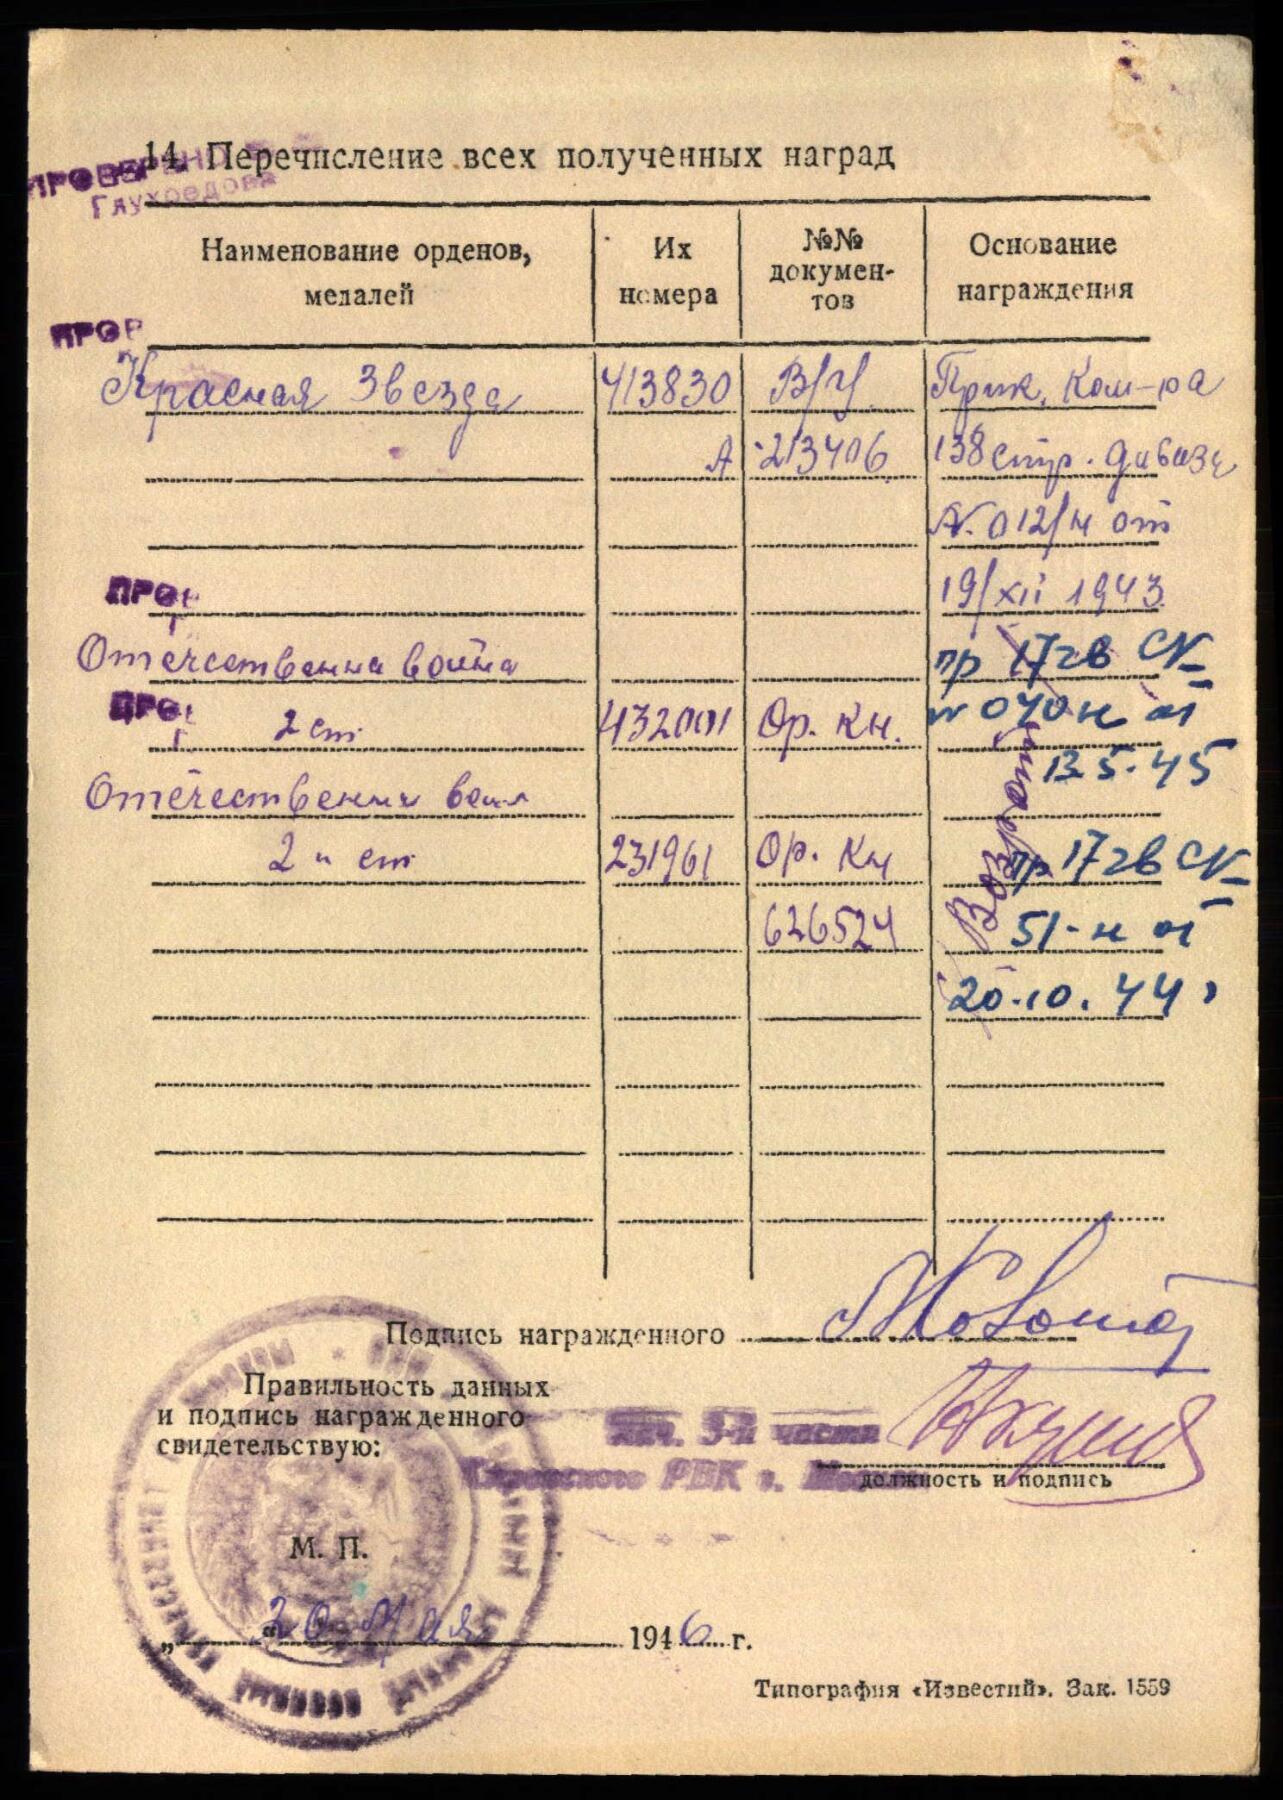 14. Перечисление всех полученных наград
ПРОВЕРЕНО
Глухоедова
Наименование орденов, медалей
Их номера
№№ документов
Основание награждения
ПРОВ
Красная Звезда 413830 В/Ч Прик. Ком-ра
А 213406 138 стр. дивизи
N. 012/н от
ПРОВ 19/XII 1943
Отечественна война пр 17 гв СК
ПРОВ 2 ст 432001 Ор. Кн. N 040н от
13.5.45
Отечественная
2й ст 231961 Ор. Кн пр 17 гв СК
626524 51-н от
20.10.44 г
Возрот
Подпись награжденного
Правильность данных
и подпись награжденного
свидетельствую:
Нач. 3-й части
РВК г.
должность и подпись
М. П.
„20“ Мая 1946 г.
Типография «Известий». Зак. 1559